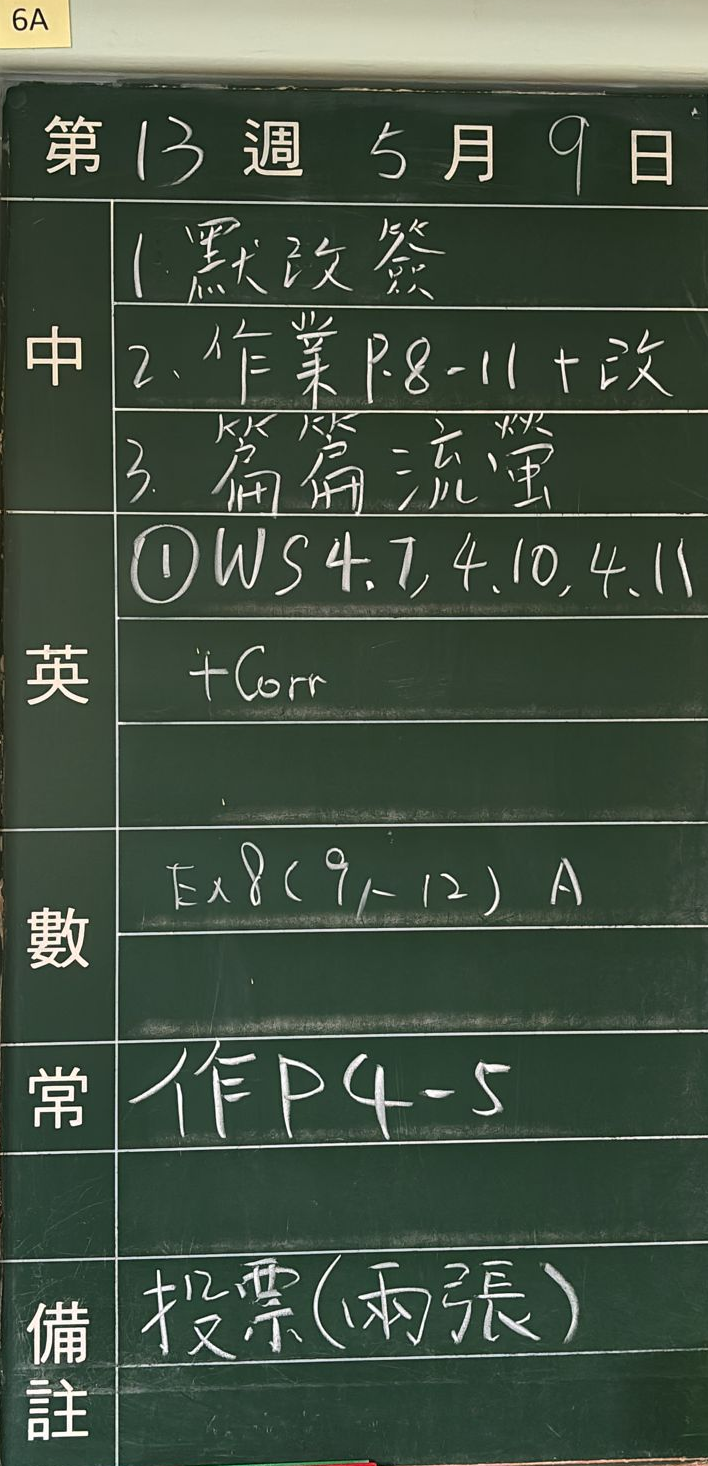 6A
第 13 週 5 月 9 日
中
1. 默改簽
2. 作業 P.8-11 + 改
3. 篇篇流螢
英
① WS 4.7, 4.10, 4.11
+Corr
數
Ex 8 (9 - 12) A
常
作 P 4-5
備註
投票(兩張)